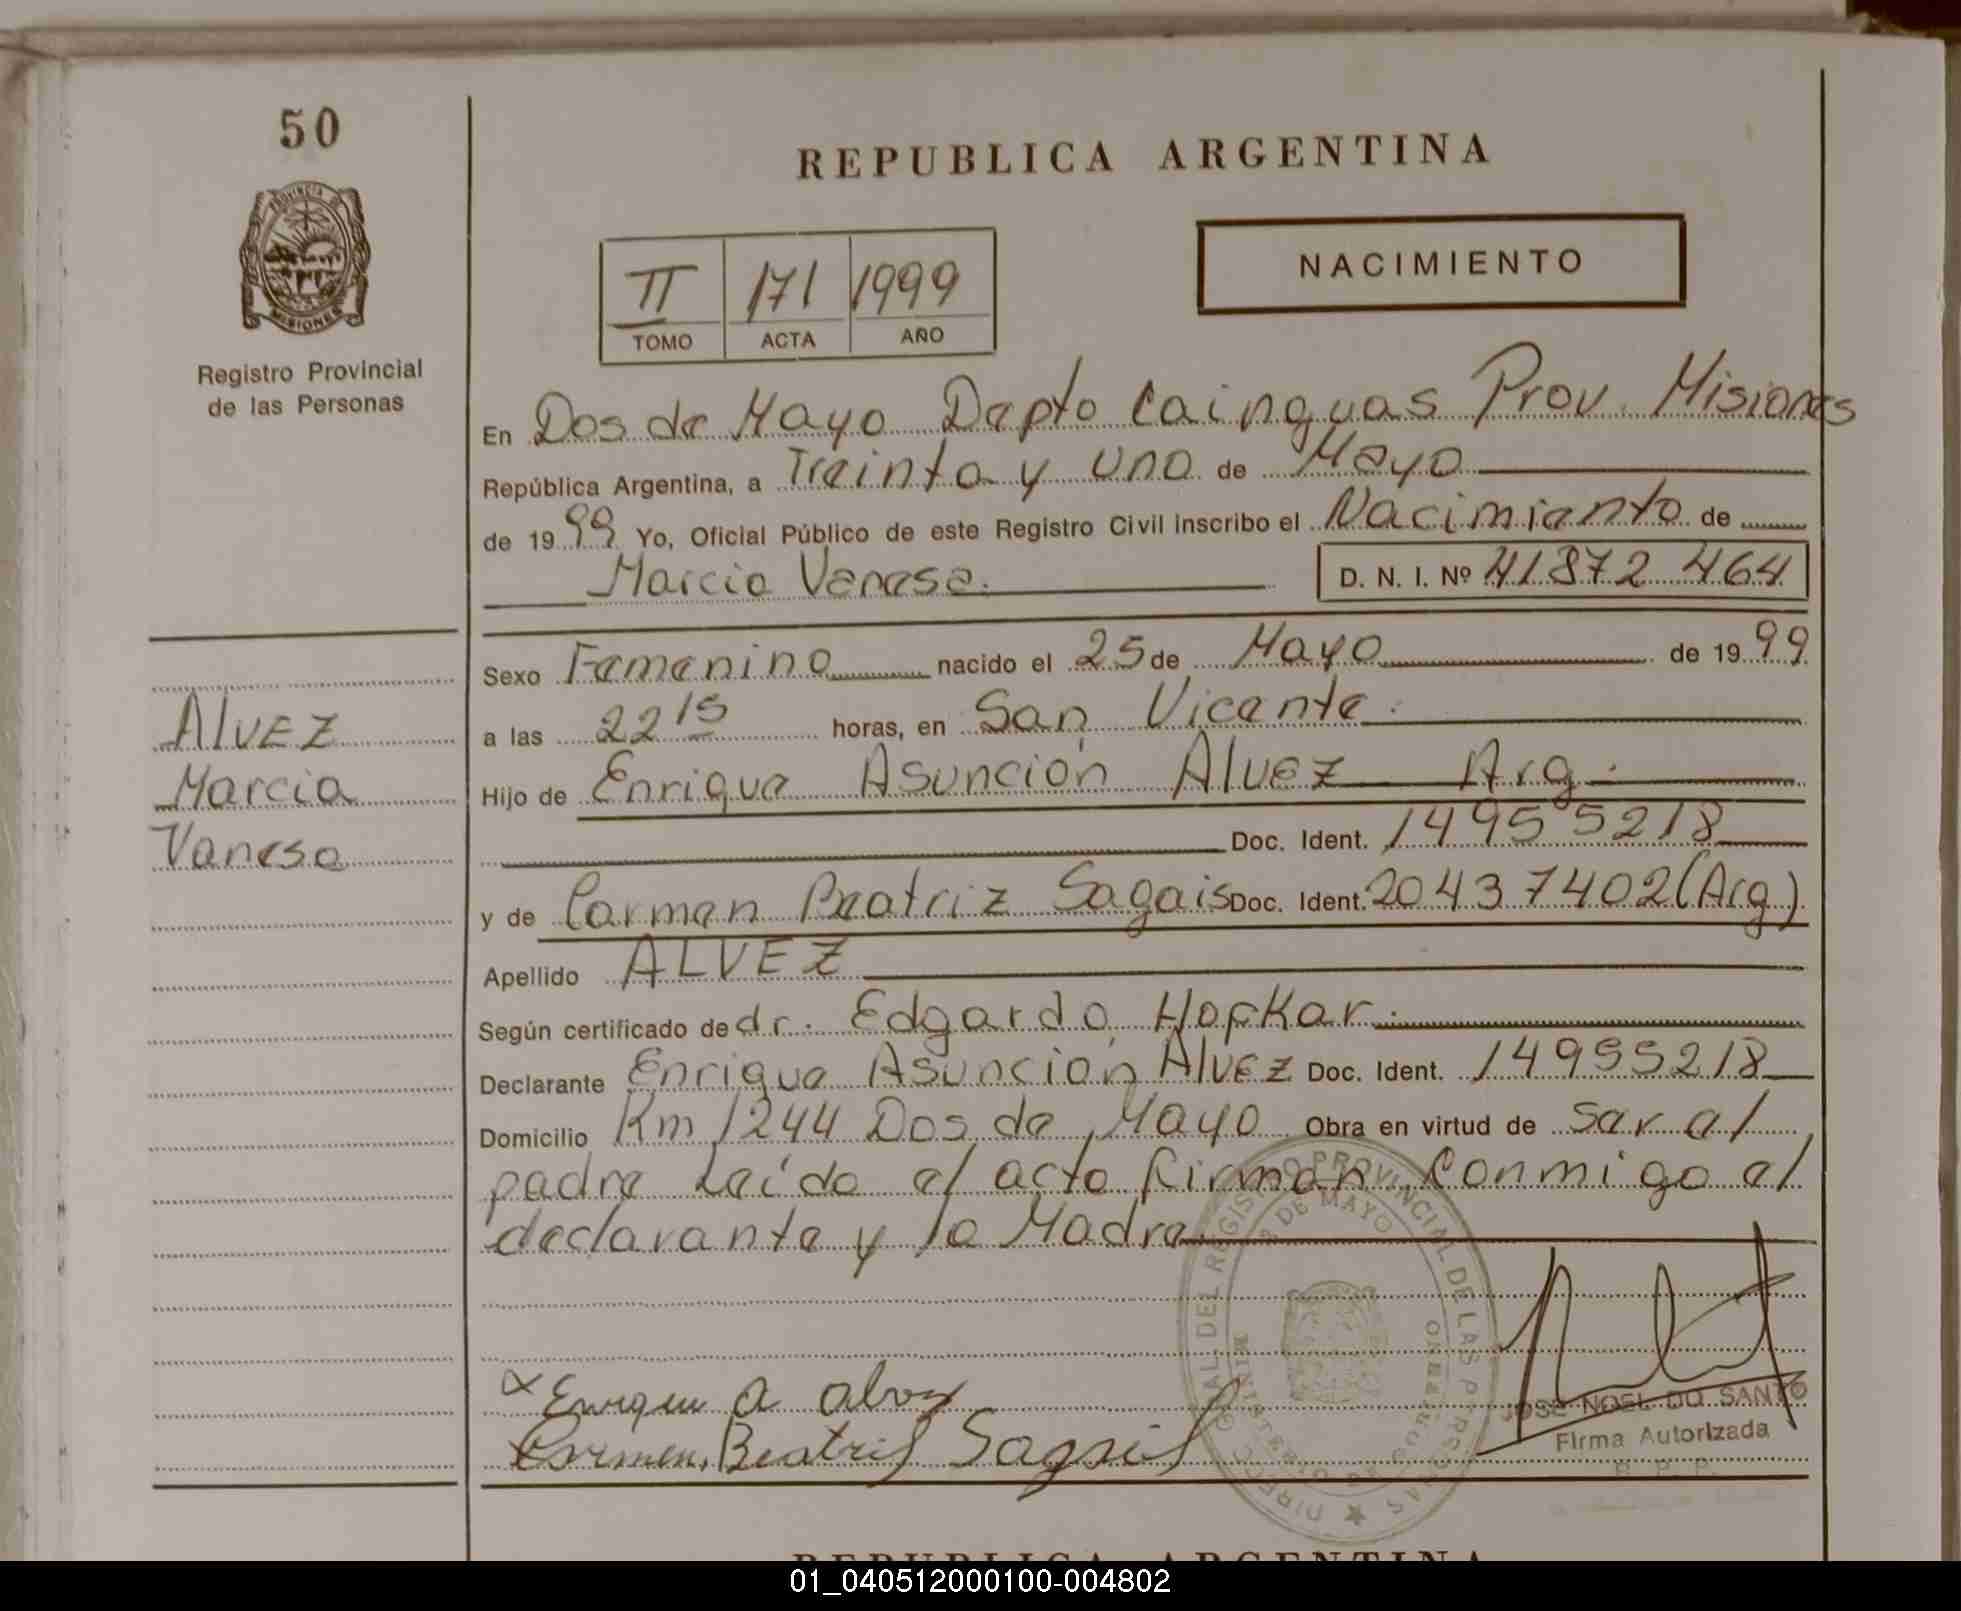 50
REPUBLICA ARGENTINA
PROVINCIA DE
MISIONES
Registro Provincial
de las Personas
II 171 1999
TOMO ACTA AÑO
NACIMIENTO
En Dos de Mayo Depto Cainguas Prov. Misiones
República Argentina, a Treinta y uno de Mayo
de 1999 Yo, Oficial Público de este Registro Civil inscribo el Nacimiento de
Marcia Vanesa. D. N. I. Nº 41872 464
Sexo Femenino nacido el 25 de Mayo de 1999
a las 22 15 horas, en San Vicente.
Hijo de Enrique Asunción Alvez Arg.
Doc. Ident. 14955218
y de Carmen Beatriz Sagais Doc. Ident. 20437402 (Arg)
Apellido ALVEZ
Según certificado de dr. Edgardo Hofkar.
Declarante Enrique Asunción Alvez Doc. Ident. 14955218
Domicilio Km 1244 Dos de Mayo Obra en virtud de ser el
padre Leído el acto firman conmigo el
declarante y la Madre.
Alvez
Marcia
Vanesa
Enrique A alvez
Carmen Beatriz
DIRECC. GRAL. DEL REGISTRO PROVINCIAL DE LAS PERSONAS
2 DE MAYO
MINISTERIO DE GOBIERNO
JOSE NOEL DO SANTO
Firma Autorizada
R. P. P.
REPUBLICA ARGENTINA
01_040512000100-004802